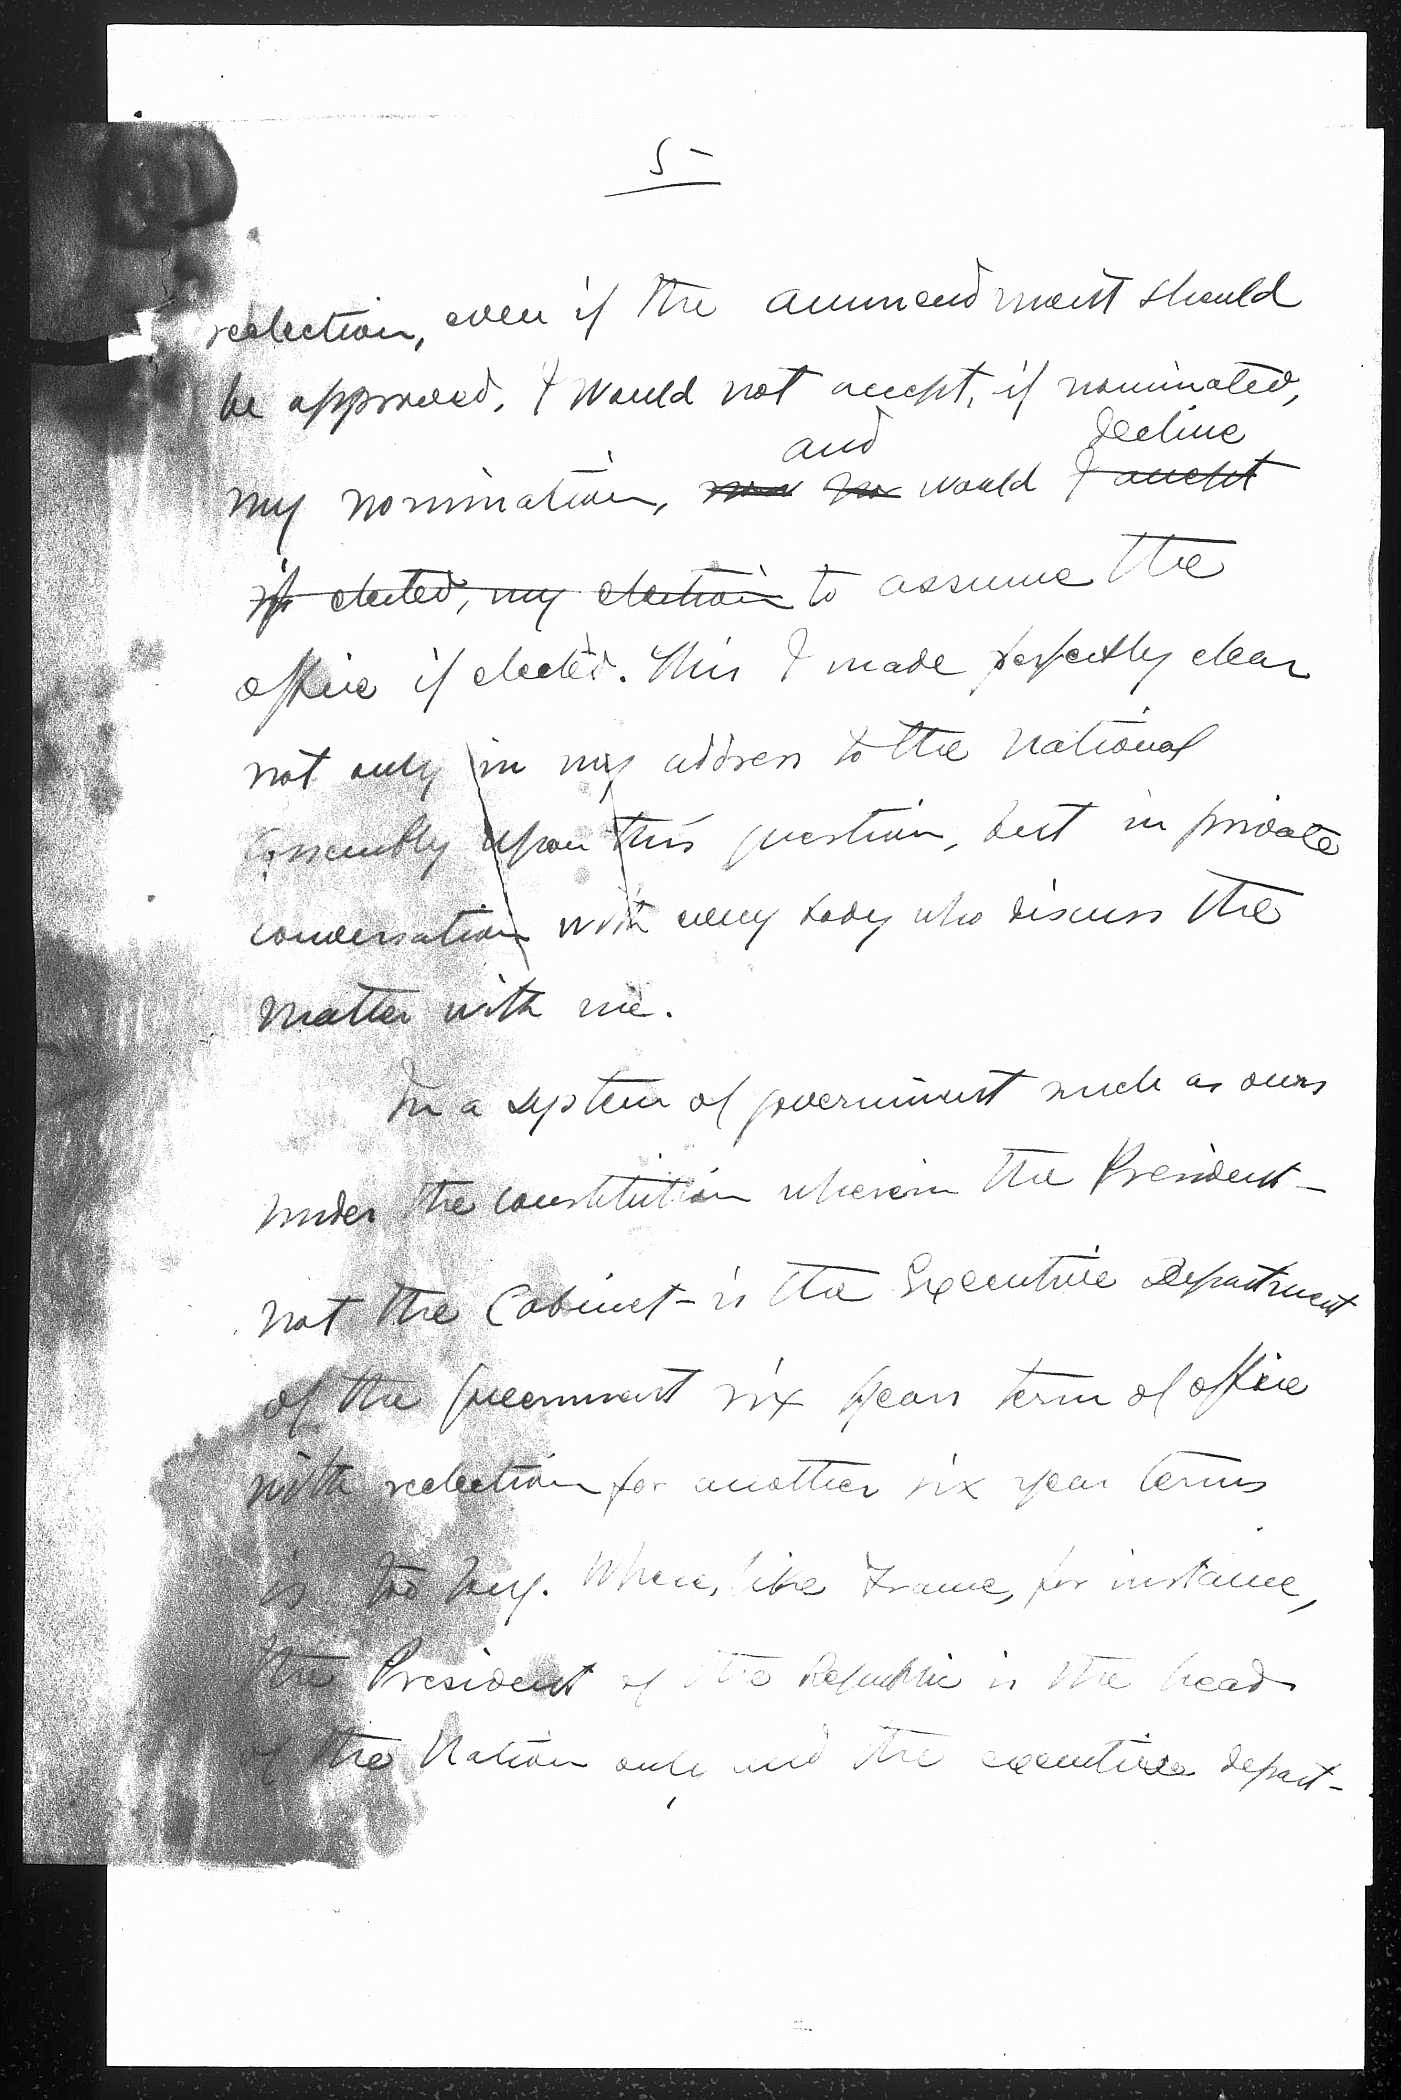 5-
reelection, even if the ammendment should
be approved. I would not accept, if nominated,
and decline
my nomination, nor would I accept
if elected, my election to assume the
office if elected. This I made perfectly clear
not only in my address to the National
Assembly upon this question, but in private
conversation with every body who discuss the
matter with me.
In a system of government such as ours
under the constitution wherein the President-
not the Cabinet - is the Executive Department
of the government six years term of office
with reelection for another six year terms
is too long. Where, like France, for instance,
the President of the Republic is the head
of the Nation only and the executive depart-